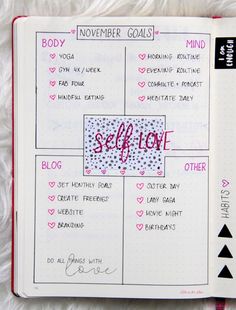 NOVEMBER GOALS
BODY
YOGA
GYM 4X/WEEK
FAB FOUR
MINDFUL EATING
MIND
MORNING ROUTINE
EVENING ROUTINE
COMMUTE + PODCAST
MEDITATE DAILY
self-LOVE
BLOG
SET MONTHLY GOALS
CREATE FREEBIES
WEBSITE
BRANDING
OTHER
SISTER DAY
LADY GAGA
MOVIE NIGHT
BIRTHDAYS
DO ALL THINGS WITH
Love
I am
ENOUGH
HABITS